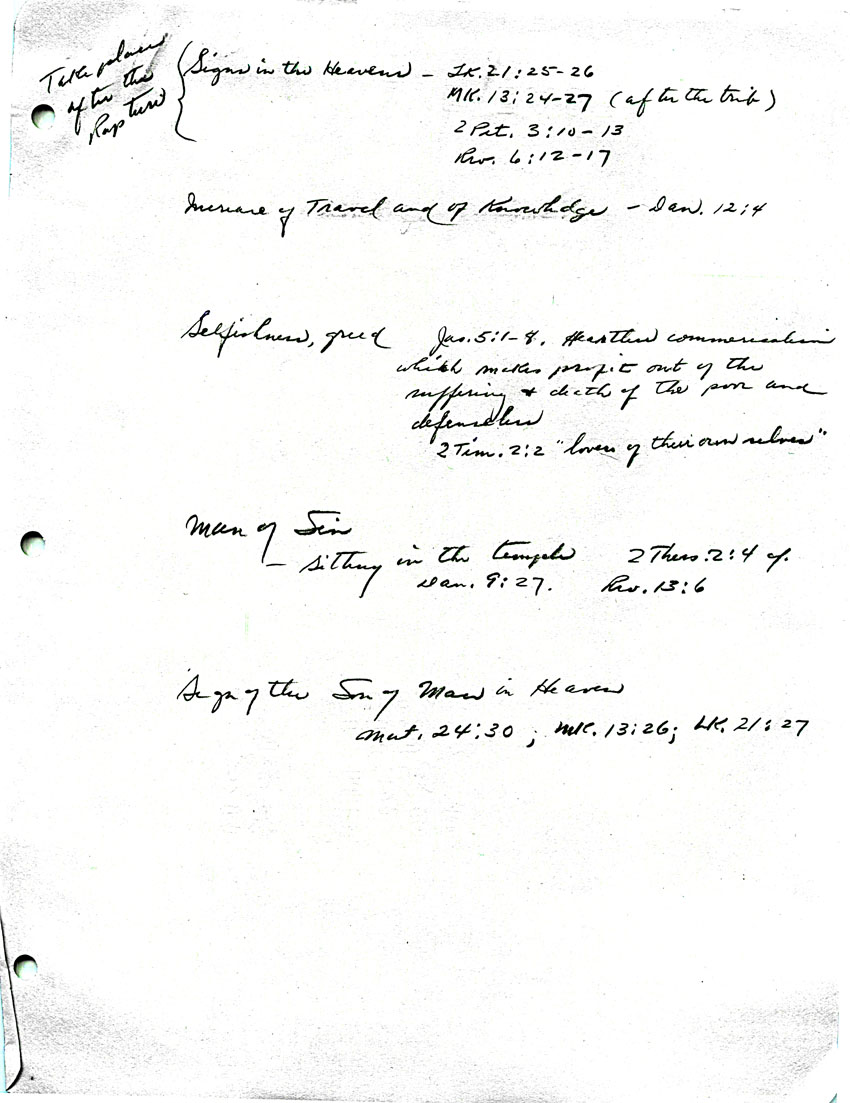 Take place
after the
Rapture
Signs in the Heavens - Lk. 21:25-26
MK. 13:24-27 (after the trib)
2 Pet. 3:10-13
Rev. 6:12-17
Increase of Travel and of Knowledge - Dan. 12:4
Selfishness, greed Jas. 5:1-8. Heartless commercialism
which makes profit out of the
suffering & death of the poor and
defenseless
2 Tim. 2:2 "lovers of their own selves"
Man of Sin
- sitting in the temple 2 Thess. 2:4 cf.
Dan. 9:27. Rev. 13:6
Sign of the Son of Man in Heaven
Mat. 24:30; MK. 13:26; LK. 21:27